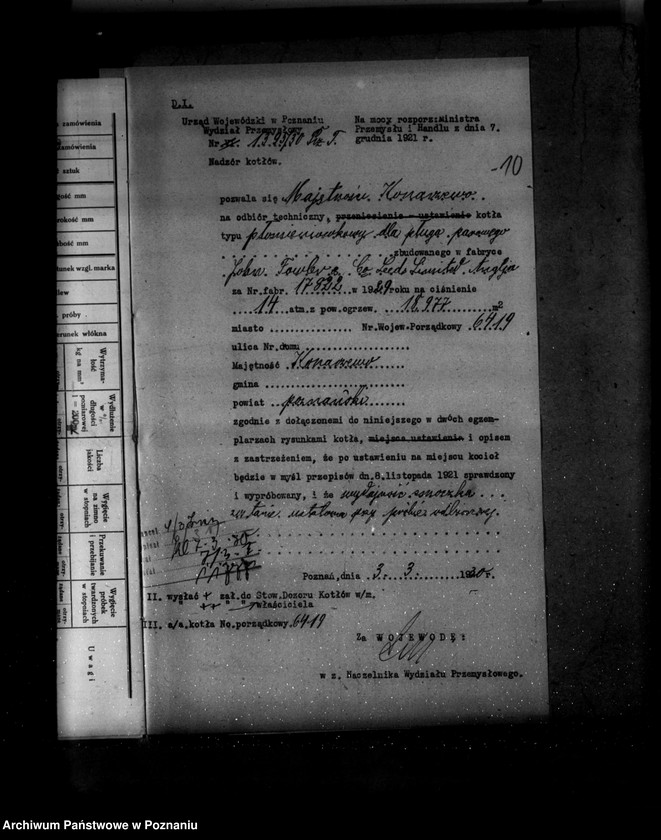 D.I.
Urząd Wojewódzki w Poznaniu
Wydział Przemysłowy
Nr. 1393/30
Nadzór kotłów.
Na mocy rozporz:Ministra
Przemysłu i Handlu z dnia 7.
grudnia 1921 r.
10
pozwala się Majętności Konarzewo.
na odbiór techniczny, przeniesienie - ustawienie kotła
typu płomieniówkowy dla pługa parowego
zbudowanego w fabryce
John Fowler & Co Leeds Limited Anglja
za Nr.fabr. 17822 w 1929 roku na ciśnienie
14 atm.z pow.ogrzew. 18.977 m2
miasto ............... Nr.Wojew.Porządkowy .6419
ulica Nr.domu ..................
Majętność . Konarzewo
gmina ........................
powiat .. poznański
zgodnie z dołączonemi do niniejszego w dwóch egzem-
plarzach rysunkami kotła, miejsca ustawienia i opisem
z zastrzeżeniem, że po ustawieniu na miejscu kocioł
będzie w myśl przepisów dn.8.listopada 1921 sprawdzony
i wypróbowany, i że wydajność smoczka ...
zostanie ustalona przy próbie odbiorczej.
7.3.30
Poznań,dnia .3..3....... 1930r.
II. wysłać + zał.do Stow.Dozoru Kotłów w/m.
++ " " właściciela
III. a/a.kotła No.porządkowy.6419
Za WOJEWODĘ:
w z. Naczelnika Wydziału Przemysłowego.
zamówienia
zamówienia
sztuk
gość mm
rokość mm
ubość mm
tunek wzgl. marka
lew
. próby
erunek włókna
Wytrzyma-
łość
kg na mm²
Wydłużenie
w %
długości
pomiarowej
l = 200
Liczba
jakości
Wygięcie
na zimno
w stopniach
Przekuwanie
i przebijanie
Wygięcie
próbek
twardzonych
w stopniach
Uwagi
Archiwum Państwowe w Poznaniu